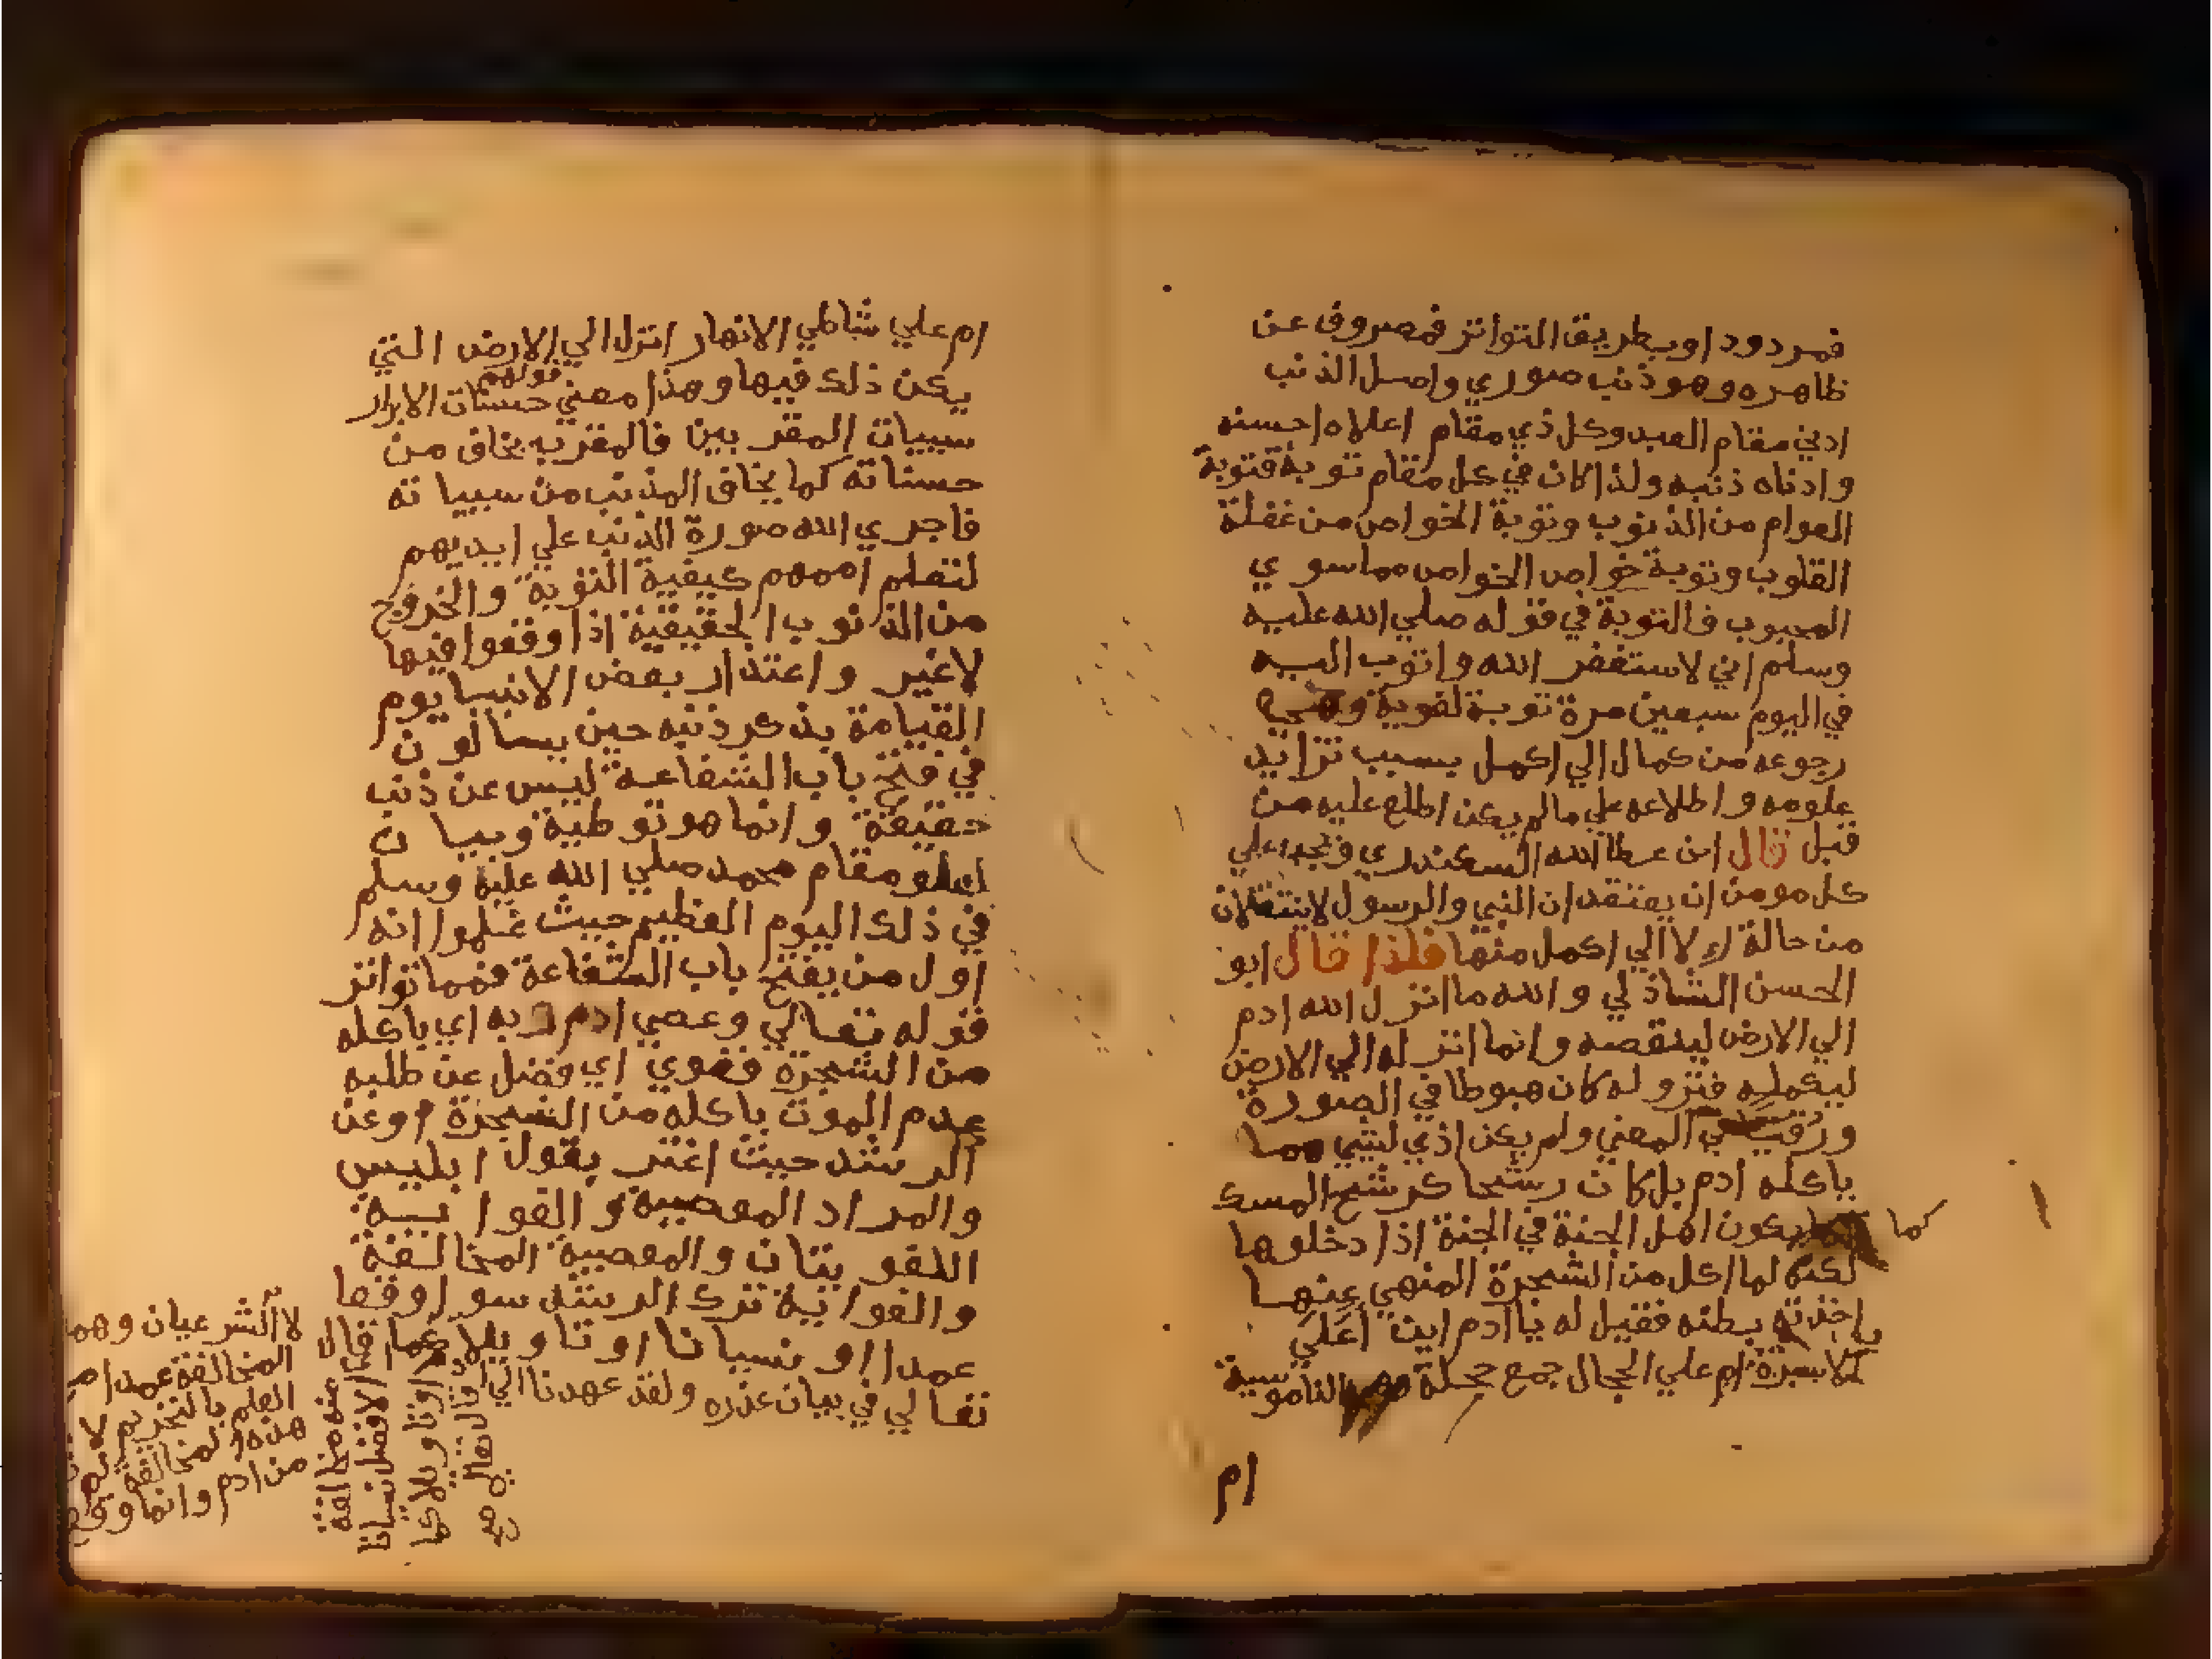 فمردود او بطريق التواتر فمصروف عن
ظاهره وهو ذنب صوري واصل الذنب
ادني مقام العبد وكل ذي مقام اعلاه احسنه
وادناه ذنبه ولذا كان في كل مقام توبة فتوبة
العوام من الذنوب وتوبة الخواص من غفلة
القلوب وتوبة خواص الخواص مما سوي
المحبوب فالتوبة في قوله صلي الله عليه
وسلم اني لاستغفر الله واتوب اليه
في اليوم سبعين مرة توبة لغوية وهي
رجوعه من كمال الي اكمل بسبب تزايد
علومه واطلاعه علي ما لم يكن اطلع عليه من
قبل قال ابن عطا الله السكندري ويجب علي
كل مومن ان يعتقد ان النبي والرسول لاينتقلان
من حالة الا الي اكمل منها فلذا قال ابو
الحسن الشاذلي والله ما انزل الله ادم
الي الارض لينقصه وانما انزله الي الارض
ليكمله فنزوله كان هبوطا في الصورة
ورقي في المعني ولم يكن اذي لشي مما
ياكله ادم بل كان رشحا كرشح المسك
كما يكون اهل الجنة في الجنة اذا دخلوها
لكنه لما اكل من الشجرة المنهي عنها
اخذته بطنه فقيل له يا ادم اين اعلي
الاسرة ام علي الحجال جمع حجلة الناموسية
ام
ام علي شاطي الانهار انزل الي الارض التي
يكن ذلك فيها وهذا معني قولهم حسنات الابرار
سييات المقربين فالمقرب يخاف من
حسناته كما يخاف المذنب من سيياته
فاجري الله صورة الذنب علي ايديهم
لتعلم اممهم كيفية التوبة والخروج
من الذنوب الحقيقية اذا وقعوا فيها
لاغير واعتذار بعض الانبيا يوم
القيامة بذكر ذنبه حين يسالون
في فتح باب الشفاعة ليس عن ذنب
حقيقة وانما هو توطية وبيان
لعلو مقام محمد صلي الله عليه وسلم
في ذلك اليوم العظيم حيث علموا انه
اول من يفتح باب الشفاعة فمما تواتر
قوله تعالي وعصي ادم ربه اي باكله
من الشجرة فغوي اي فضل عن طلبه
عدم الموت باكله من الشجرة او عن
الرشد حيث اغتر بقول ابليس
والمراد المعصية والغواية
اللغويتان والمعصية المخالفة
والغواية ترك الرشد سوا وقعا
عمدا او نسيانا او تاويلا كما قال
تعالي في بيان عذره ولقد عهدنا الي
لا الشرعيان وهما
المخالفة عمدا مع
العلم بالتحريم لا
هذه المخالفة لم
من ادم وانما وقع
عنه مخالفة
الافضل نسيانا
او تاويلا كما
قال تعالي